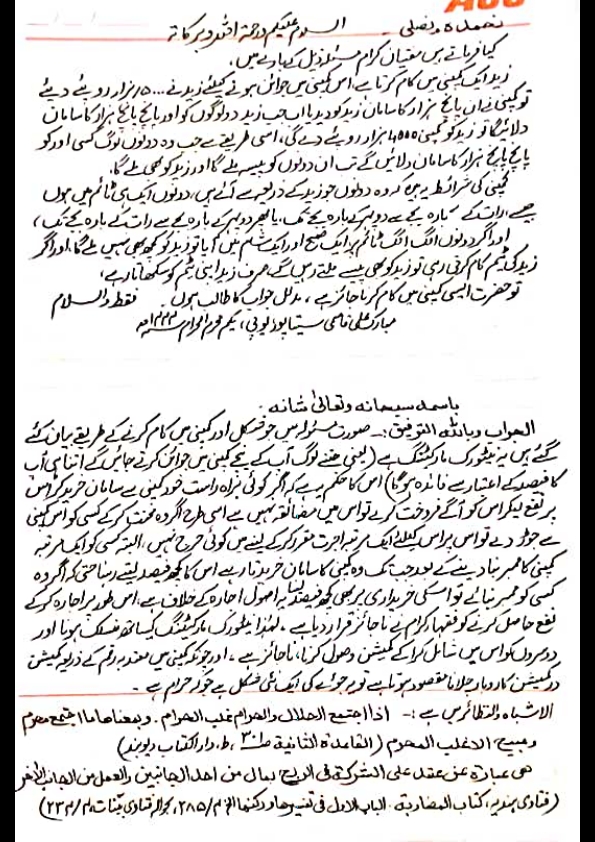 نحمدہ و نصلی السلام علیکم ورحمۃ اللہ وبرکاتہ
کیا فرماتے ہیں مفتیان کرام مسئلہ ذیل کے بارے میں،
زید ایک کمپنی میں کام کرتا ہے اس کمپنی میں جوائن ہونے کیلئے زید نے ہزار روپئے دیئے
تو کمپنی نے ان پانچ ہزار کا سامان زید کو دیدیا اب جب زید دو لوگوں کو اور پانچ پانچ ہزار کا سامان
دلائیگا تو زید کو کمپنی ہزار روپئے دے گی، اسی طریقے سے جب وہ دونوں لوگ کسی اور کو
پانچ پانچ ہزار کا سامان دلائیں گے تب ان دونوں کو پیسہ ملے گا اور زید کو بھی ملے گا،
کمپنی کی شرائط یہ ہیں کہ وہ دونوں جو زید کے ذریعہ سے آئے ہیں، دونوں ایک ہی ٹائم میں ہوں
جیسے رات کے بارہ بجے سے دوپہر کے بارہ بجے تک، یا پھر دوپہر کے بارہ بجے سے رات کے بارہ بجے تک،
اور اگر دونوں الگ الگ ٹائم پر ایک صبح اور ایک شام میں آیا تو زید کو کچھ بھی نہیں ملے گا، اور اگر
زید کی ٹیم کام کرتی رہی تو زید کو بھی پیسے ملتے رہیں گے صرف زید اپنی ٹیم کو سکھاتا رہے،
تو حضرت ایسی کمپنی میں کام کرنا جائز ہے، مدلل جواب کا طالب ہوں۔ فقط والسلام
مبارک علی قاسمی سیتاپور یوپی، یکم محرم الحرام
باسمہ سبحانہ وتعالیٰ شانہ
الجواب وباللہ التوفیق:۔ صورت مسئولہ میں جو شکل اور کمپنی میں کام کرنے کے طریقے بیان کئے
گئے ہیں یہ نیٹورک مارکیٹنگ ہے (یعنی جتنے لوگ آپ کے نیچے کمپنی میں جوائن کرتے جائیں گے اتنا ہی آپ
کا فیصد کے اعتبار سے فائدہ ہوگا) اس کا حکم یہ ہے کہ اگر کوئی براہ راست خود کمپنی سے سامان خرید کر اس
پر نفع لیکر اس کو آگے فروخت کرے تو اس میں مضائقہ نہیں ہے اسی طرح اگر وہ محنت کرکے کسی کو اس کمپنی
سے جوڑ دے تو اس پر اس کیلئے ایک مرتبہ اجرت مقرر کرکے لینے میں کوئی حرج نہیں، البتہ کسی کو ایک مرتبہ
کمپنی کا ممبر بنا دینے کے بعد جب تک وہ کمپنی کا سامان خریدتا رہے اس کا کچھ فیصد لیتے رہنا حتی کہ اگر وہ
کسی کو ممبر بنائے تو اسکی خریداری پر بھی کچھ فیصد لینا یہ اصول اجارہ کے خلاف ہے، اس طور پر اجارہ کرکے
نفع حاصل کرنے کو فقہاء کرام نے ناجائز قرار دیا ہے، لہٰذا نیٹورک مارکیٹنگ کیساتھ منسلک ہونا اور
دوسروں کو اس میں شامل کراکے کمیشن وصول کرنا، ناجائز ہے، اور چونکہ کمپنی میں معتدبہ رقم کے ذریعہ کمیشن
در کمیشن کاروبار چلانا مقصود ہوتا ہے تو یہ جوائے کی ایک نئی شکل ہے جو کہ حرام ہے۔
الاشباہ والنظائر میں ہے:۔ اذا اجتمع الحلال والحرام غلب الحرام۔ وبمعناها ما اجتمع محرم
ومبیح الا غلب المحرم (القاعدۃ الثانیۃ ط، دار الکتاب دیوبند)
ھی عبارۃ عن عقد علی الشرکۃ فی الربح بمال من احد الجانبین والعمل من الجانب الآخر
(فتاوی ہندیہ، کتاب المضاربۃ۔ الباب الاول فی تفسیرھا ورکنھا الخ ۴/۲۸۵، بحوالہ فتاوی بینات، ۴/۲۳۲)